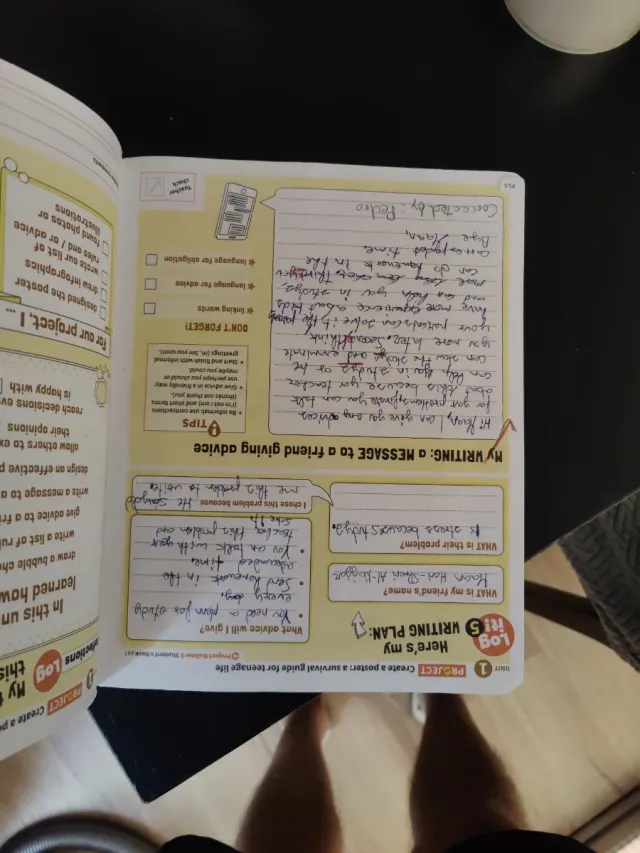 UNIT 1 PROJECT Create a poster: a survival guide for teenage life
Log it! 5
Here's my
WRITING PLAN:
WHAT is my friend's name?
WHAT is their problem?
Is stress because study.
What advice will I give?
• You need a plan for study
every day.
• Send homework in the
time.
• You can talk with your
teacher this problem and
I chose this problem because
me this problem to
My WRITING: a MESSAGE to a friend giving advice
I can give you any advices
for your problem, firstly you can talk
about this because your teacher
can help you in studys or he
can slow the study and
you more later. Secondly, I think
your parents can solve it, the
have more experience about kids
and can help you in studys.
can do homework in the
correspondet time.
Bye
Corrected by: Pedro
TIPS
• Be informal: use contractions
(I'm not I am) and short forms
(thanks not thank you).
• Give advice in a friendly way:
use perhaps you should or
maybe you could.
• Start and finish with informal
greetings (Hi, See you soon).
DON'T FORGET!
linking words
language for advice
language for obligation
Teacher
check
PROJECT 1
Create a po
My t
this
Log
In this un
learned how
draw a bubble cha
write a list of rul
give advice to a fri
write a message to a
design an effective p
allow others to ex
their opinions
reach decisions eve
is happy with
For our project, I ...
designed the poster
drew infographics
wrote our list of
rules and / or advice
found photos or
illustrations